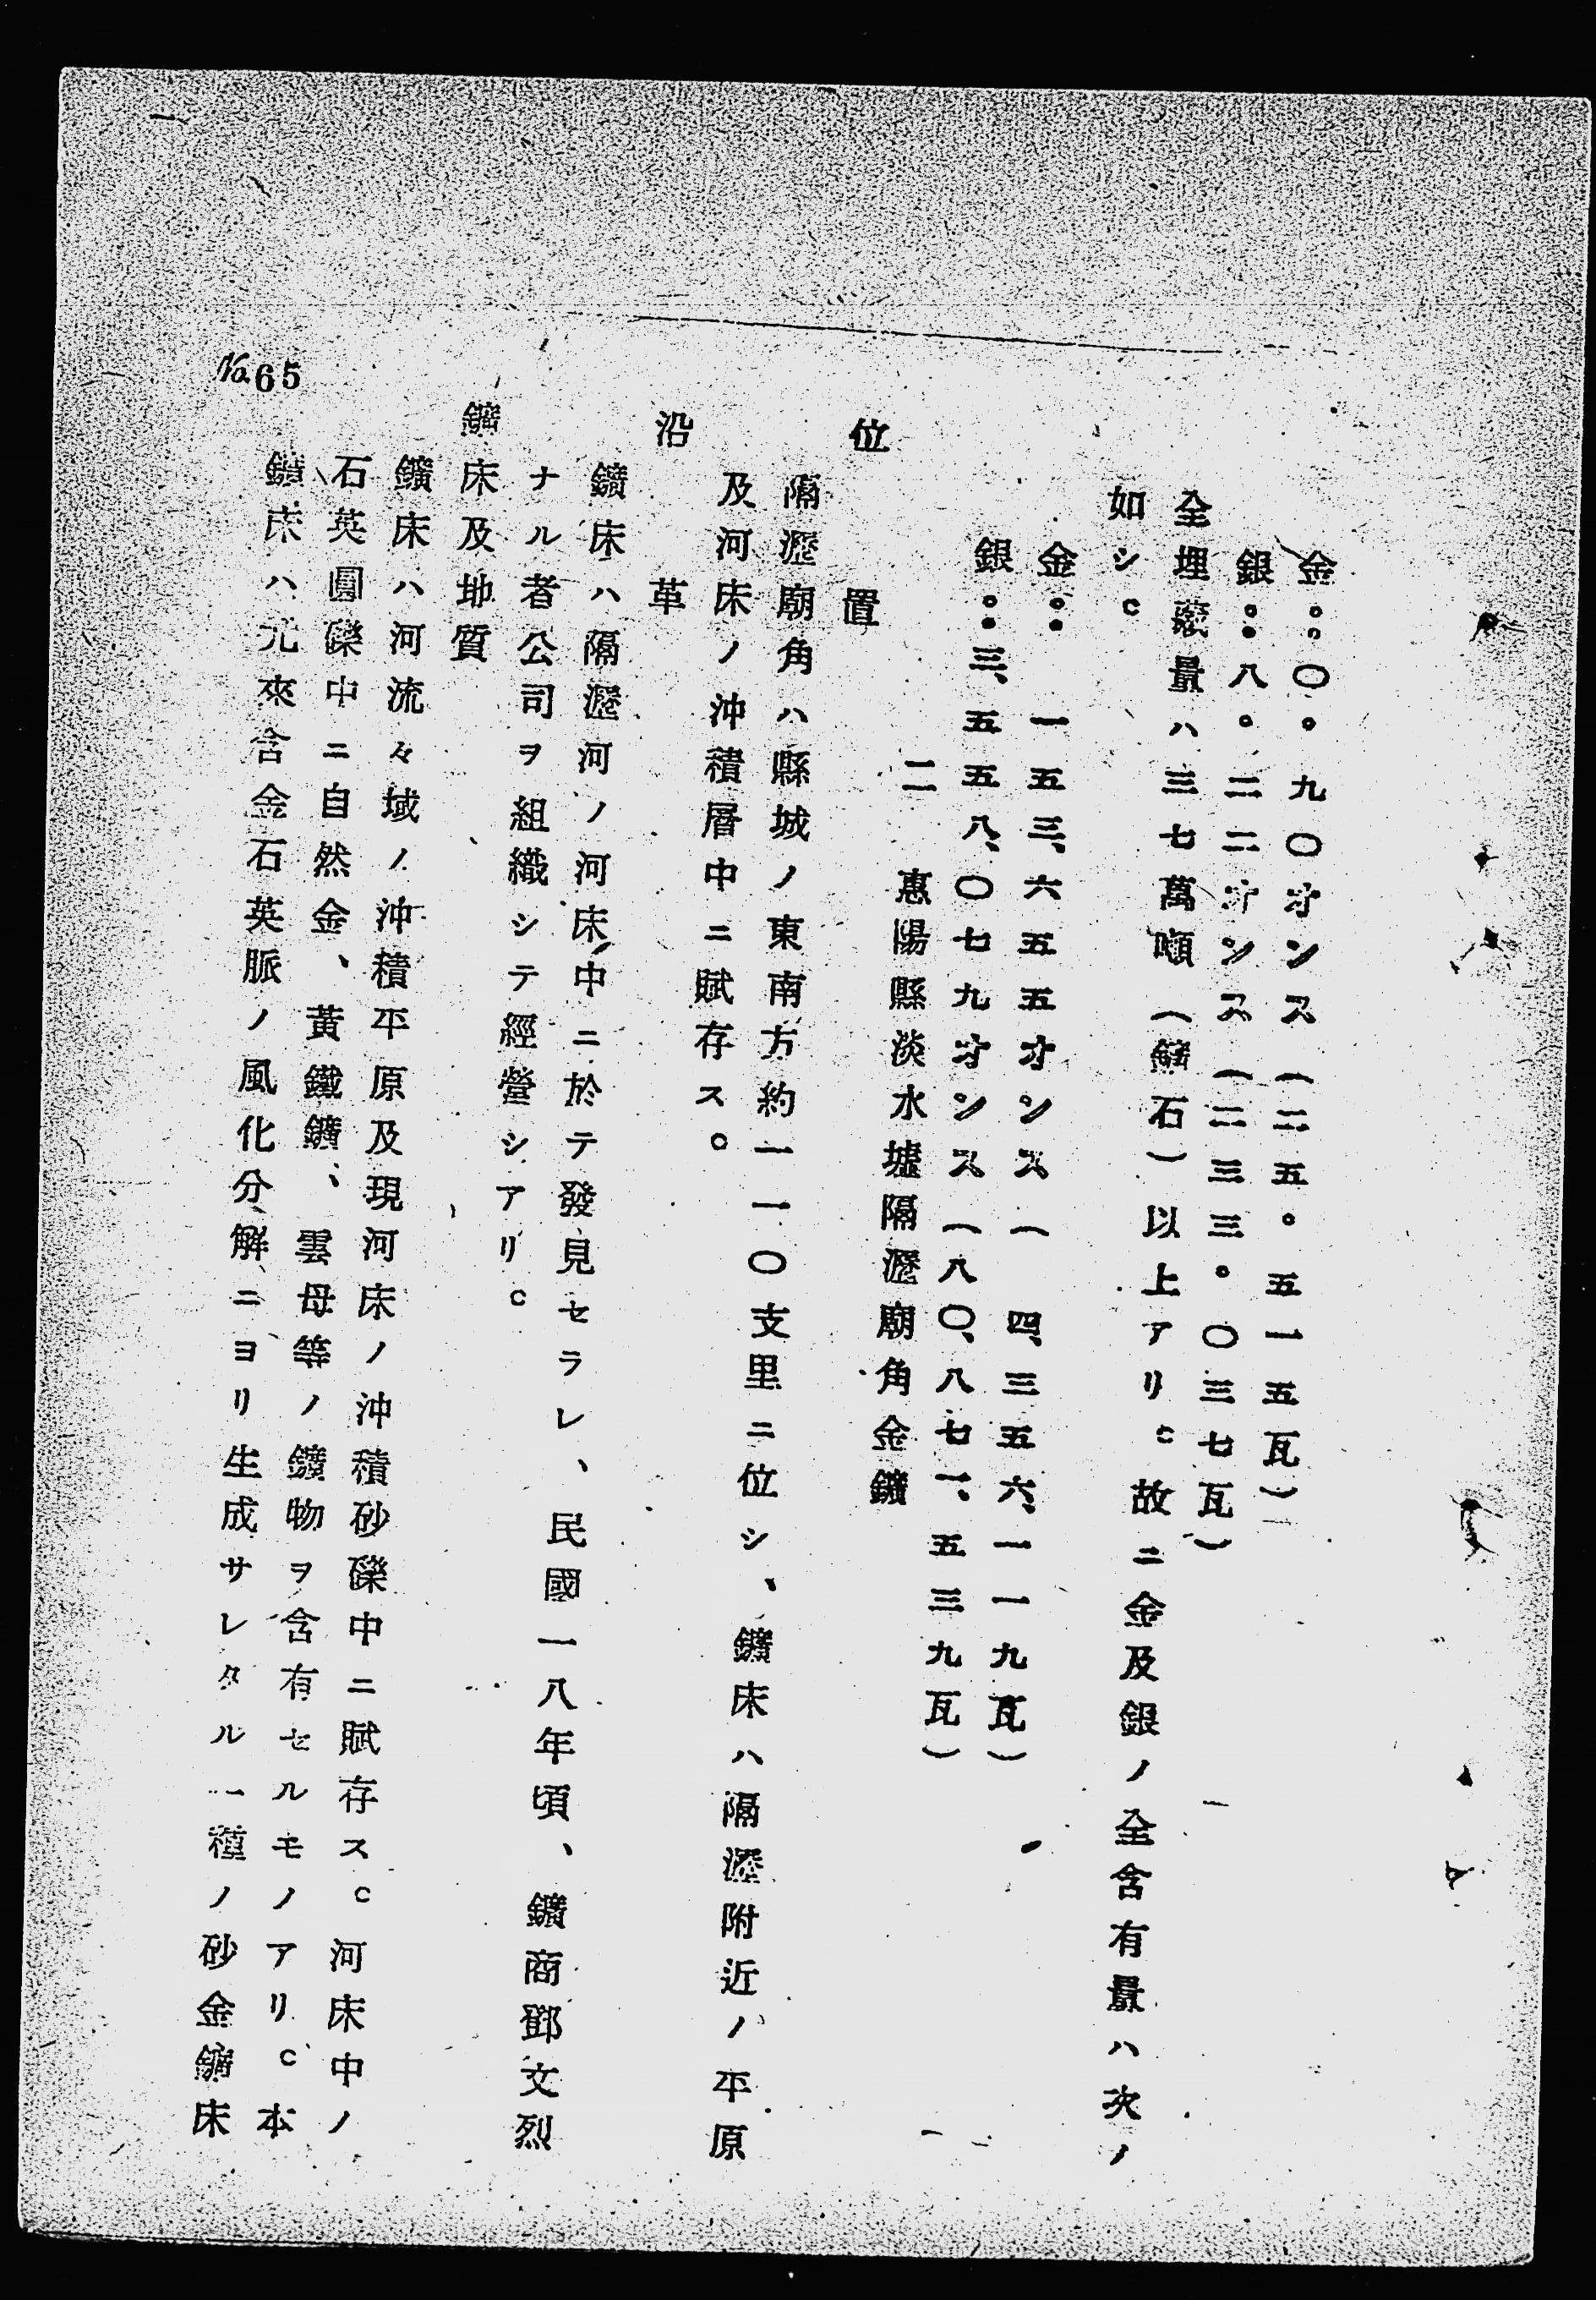 金：〇。九〇オンス（二五。五一五瓦）
銀：八。二二オンス（二三三。〇三七瓦）
全埋藏量ハ三七萬噸（鑛石）以上アリ。故ニ金及銀ノ全含有量ハ次ノ
如シ。
金：一五三、六五五オンス（四、三五六、一一九瓦）
銀：三、五五八、〇七九オンス（八〇、八七一、五三九瓦）
二　惠陽縣淡水墟隔瀝廟角金鑛
位置
隔瀝廟角ハ縣城ノ東南方約一一〇支里ニ位シ、鑛床ハ隔瀝附近ノ平原
及河床ノ沖積層中ニ賦存ス。
沿革
鑛床ハ隔瀝河ノ河床中ニ於テ發見セラレ、民國一八年頃、鑛商鄧文烈
ナル者公司ヲ組織シテ經營シアリ。
鑛床及地質
鑛床ハ河流々域ノ沖積平原及現河床ノ沖積砂礫中ニ賦存ス。河床中ノ
石英圓礫中ニ自然金、黃鐵鑛、雲母等ノ鑛物ヲ含有セルモノアリ。本
鑛床ハ元來含金石英脈ノ風化分解ニヨリ生成サレタル一種ノ砂金鑛床
No.65